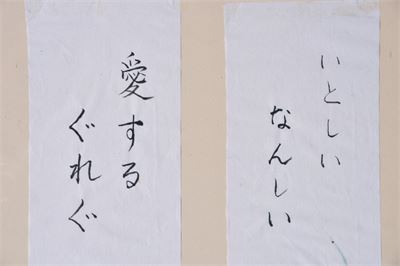 いとしい
なんしい
愛する
ぐれぐ